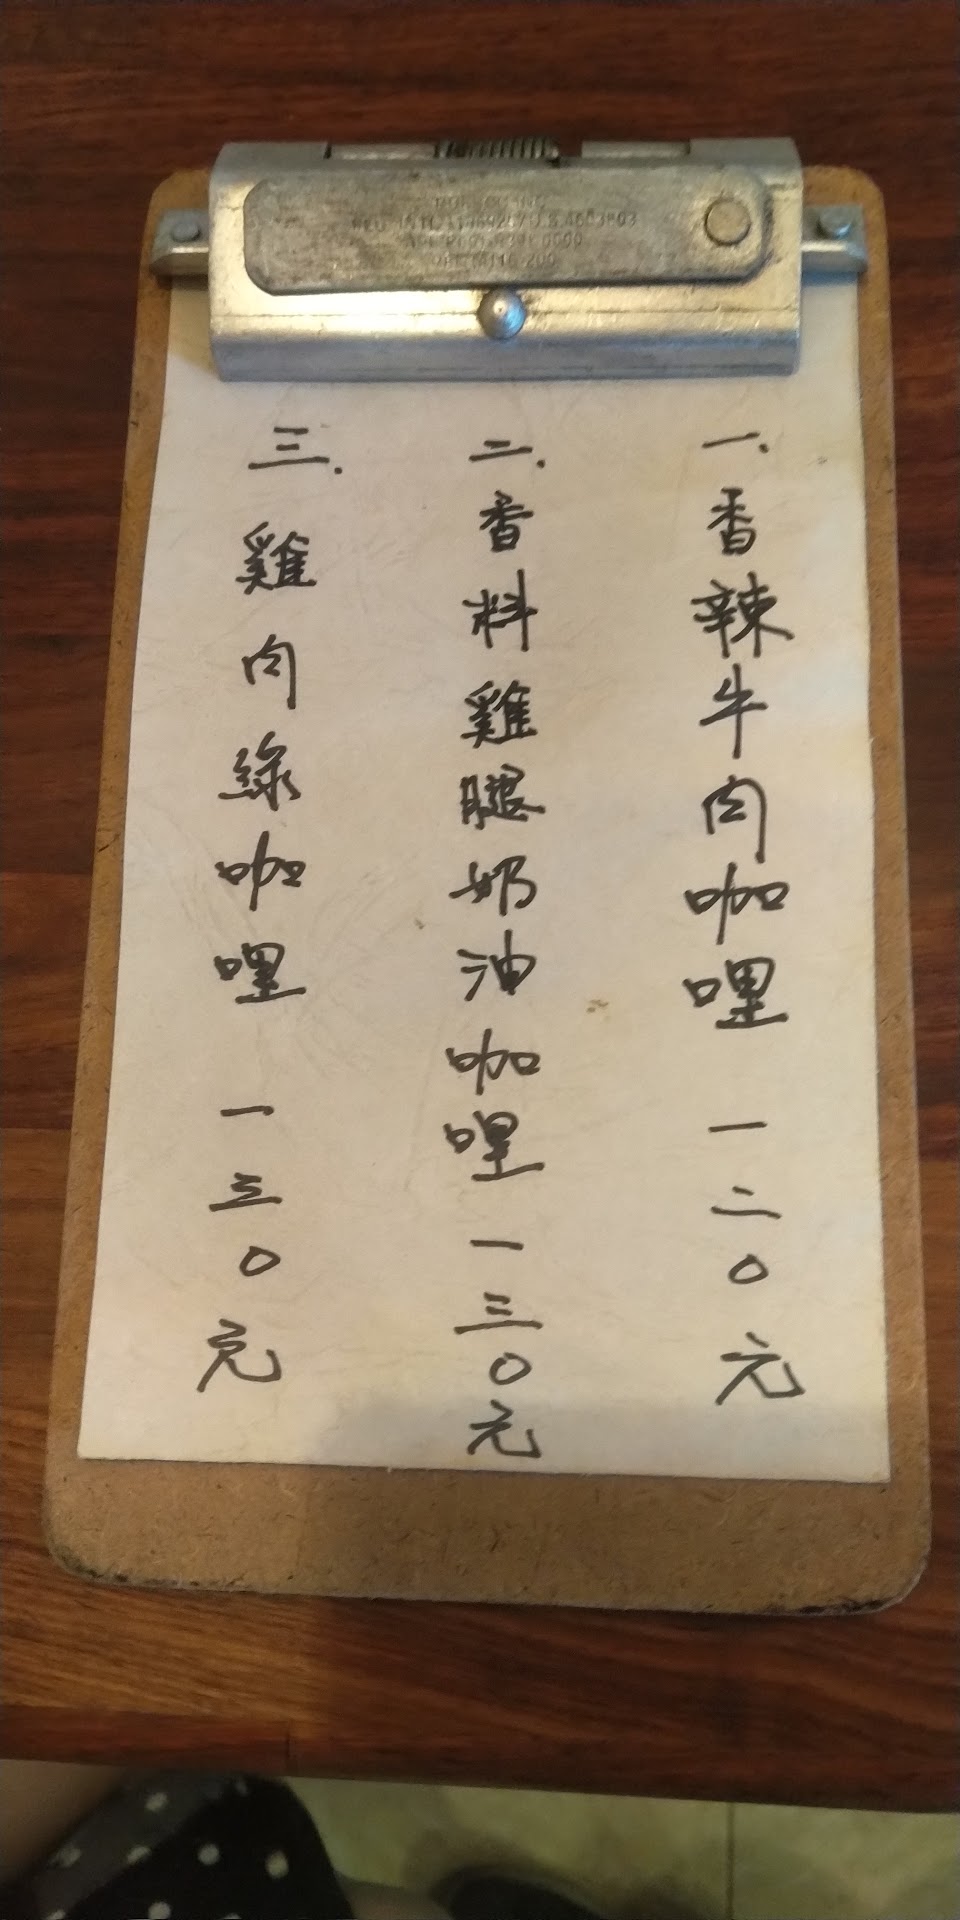 一.香辣牛肉咖哩 一二0元
二.香料雞腿奶油咖哩 一三0元
三.雞肉綠咖哩 一三0元